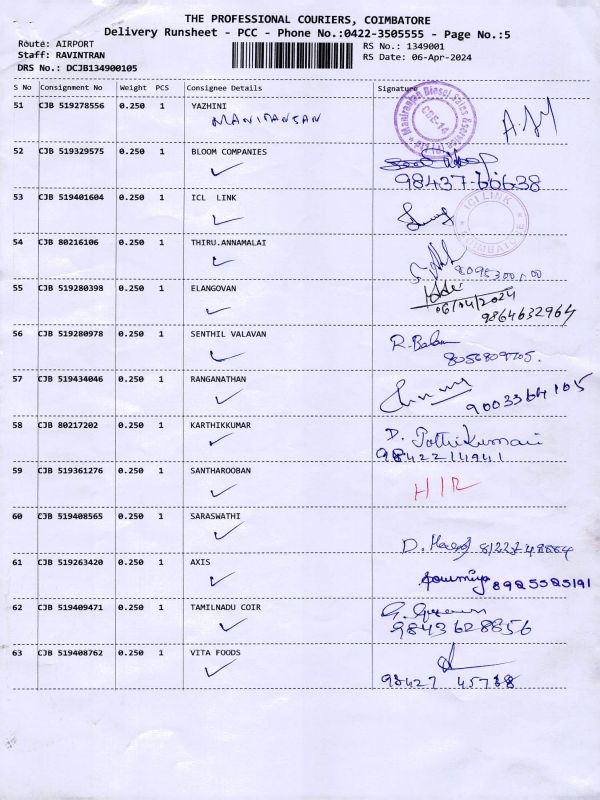 THE PROFESSIONAL COURIERS, COIMBATORE
Delivery Runsheet - PCC - Phone No.:0422-3505555 - Page No.:5
Route: AIRPORT
Staff: RAVINTRAN
DRS No.: DCJB134900105
RS No.: 1349001
RS Date: 06-Apr-2024
S No Consignment No Weight PCS Consignee Details Signature
51 CJB 519278556 0.250 1 YAZHINI
MANIRANJAN
52 CJB 519329575 0.250 1 BLOOM COMPANIES
98437-66638
53 CJB 519401604 0.250 1 ICL LINK
ICI LINK
54 CJB 80216106 0.250 1 THIRU.ANNAMALAI
55 CJB 519280398 0.250 1 ELANGOVAN
06/04/2024
9864632964
56 CJB 519280978 0.250 1 SENTHIL VALAVAN
R. Balan
57 CJB 519434046 0.250 1 RANGANATHAN
9003364105
58 CJB 80217202 0.250 1 KARTHIKKUMAR
D. JothiKumari
9842214941
59 CJB 519361276 0.250 1 SANTHAROOBAN
HIR
60 CJB 519408565 0.250 1 SARASWATHI
D.
61 CJB 519263420 0.250 1 AXIS
Sowmiya 8925525191
62 CJB 519409471 0.250 1 TAMILNADU COIR
9843628856
63 CJB 519408762 0.250 1 VITA FOODS
93427 45738